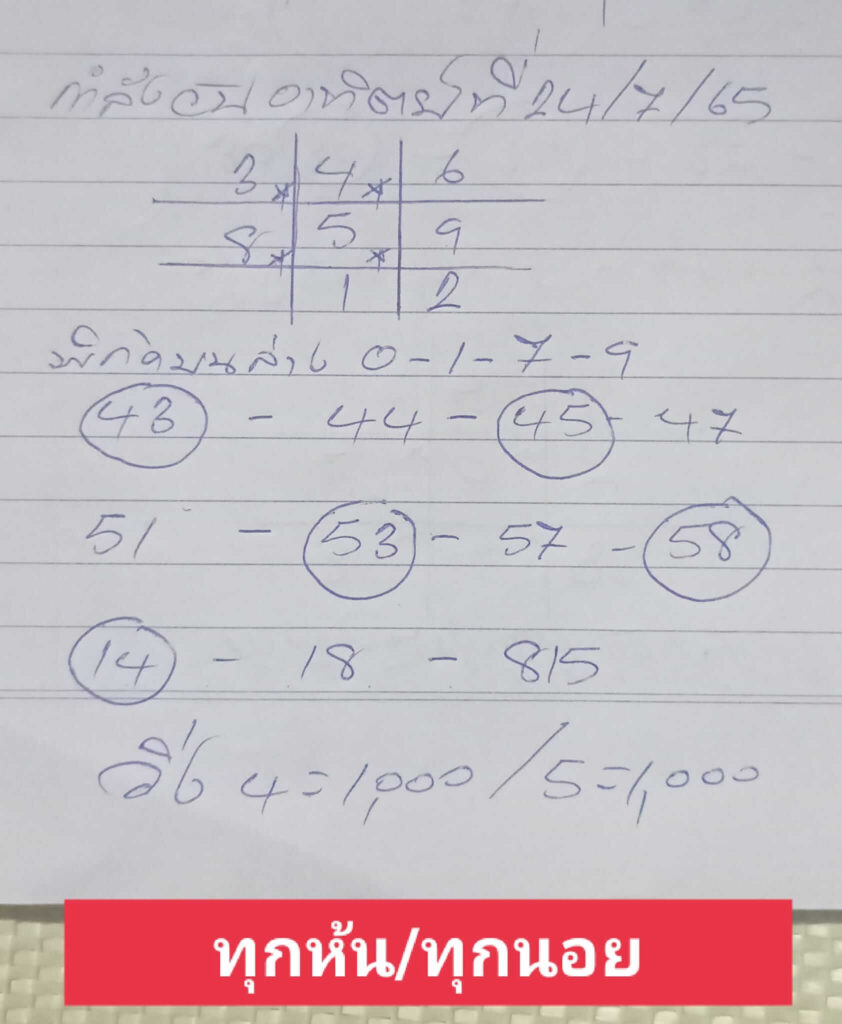 กำลังวันอาทิตย์ที่ 24/7/65
3 * 4 * 6
8 * 5 * 9
1 2
พิกัดบนล่าง 0-1-7-9
43 - 44 - 45 - 47
51 - 53 - 57 - 58
14 - 18 - 815
วิ่ง 4=1,000 / 5=1,000
ทุกหุ้น/ทุกนอย